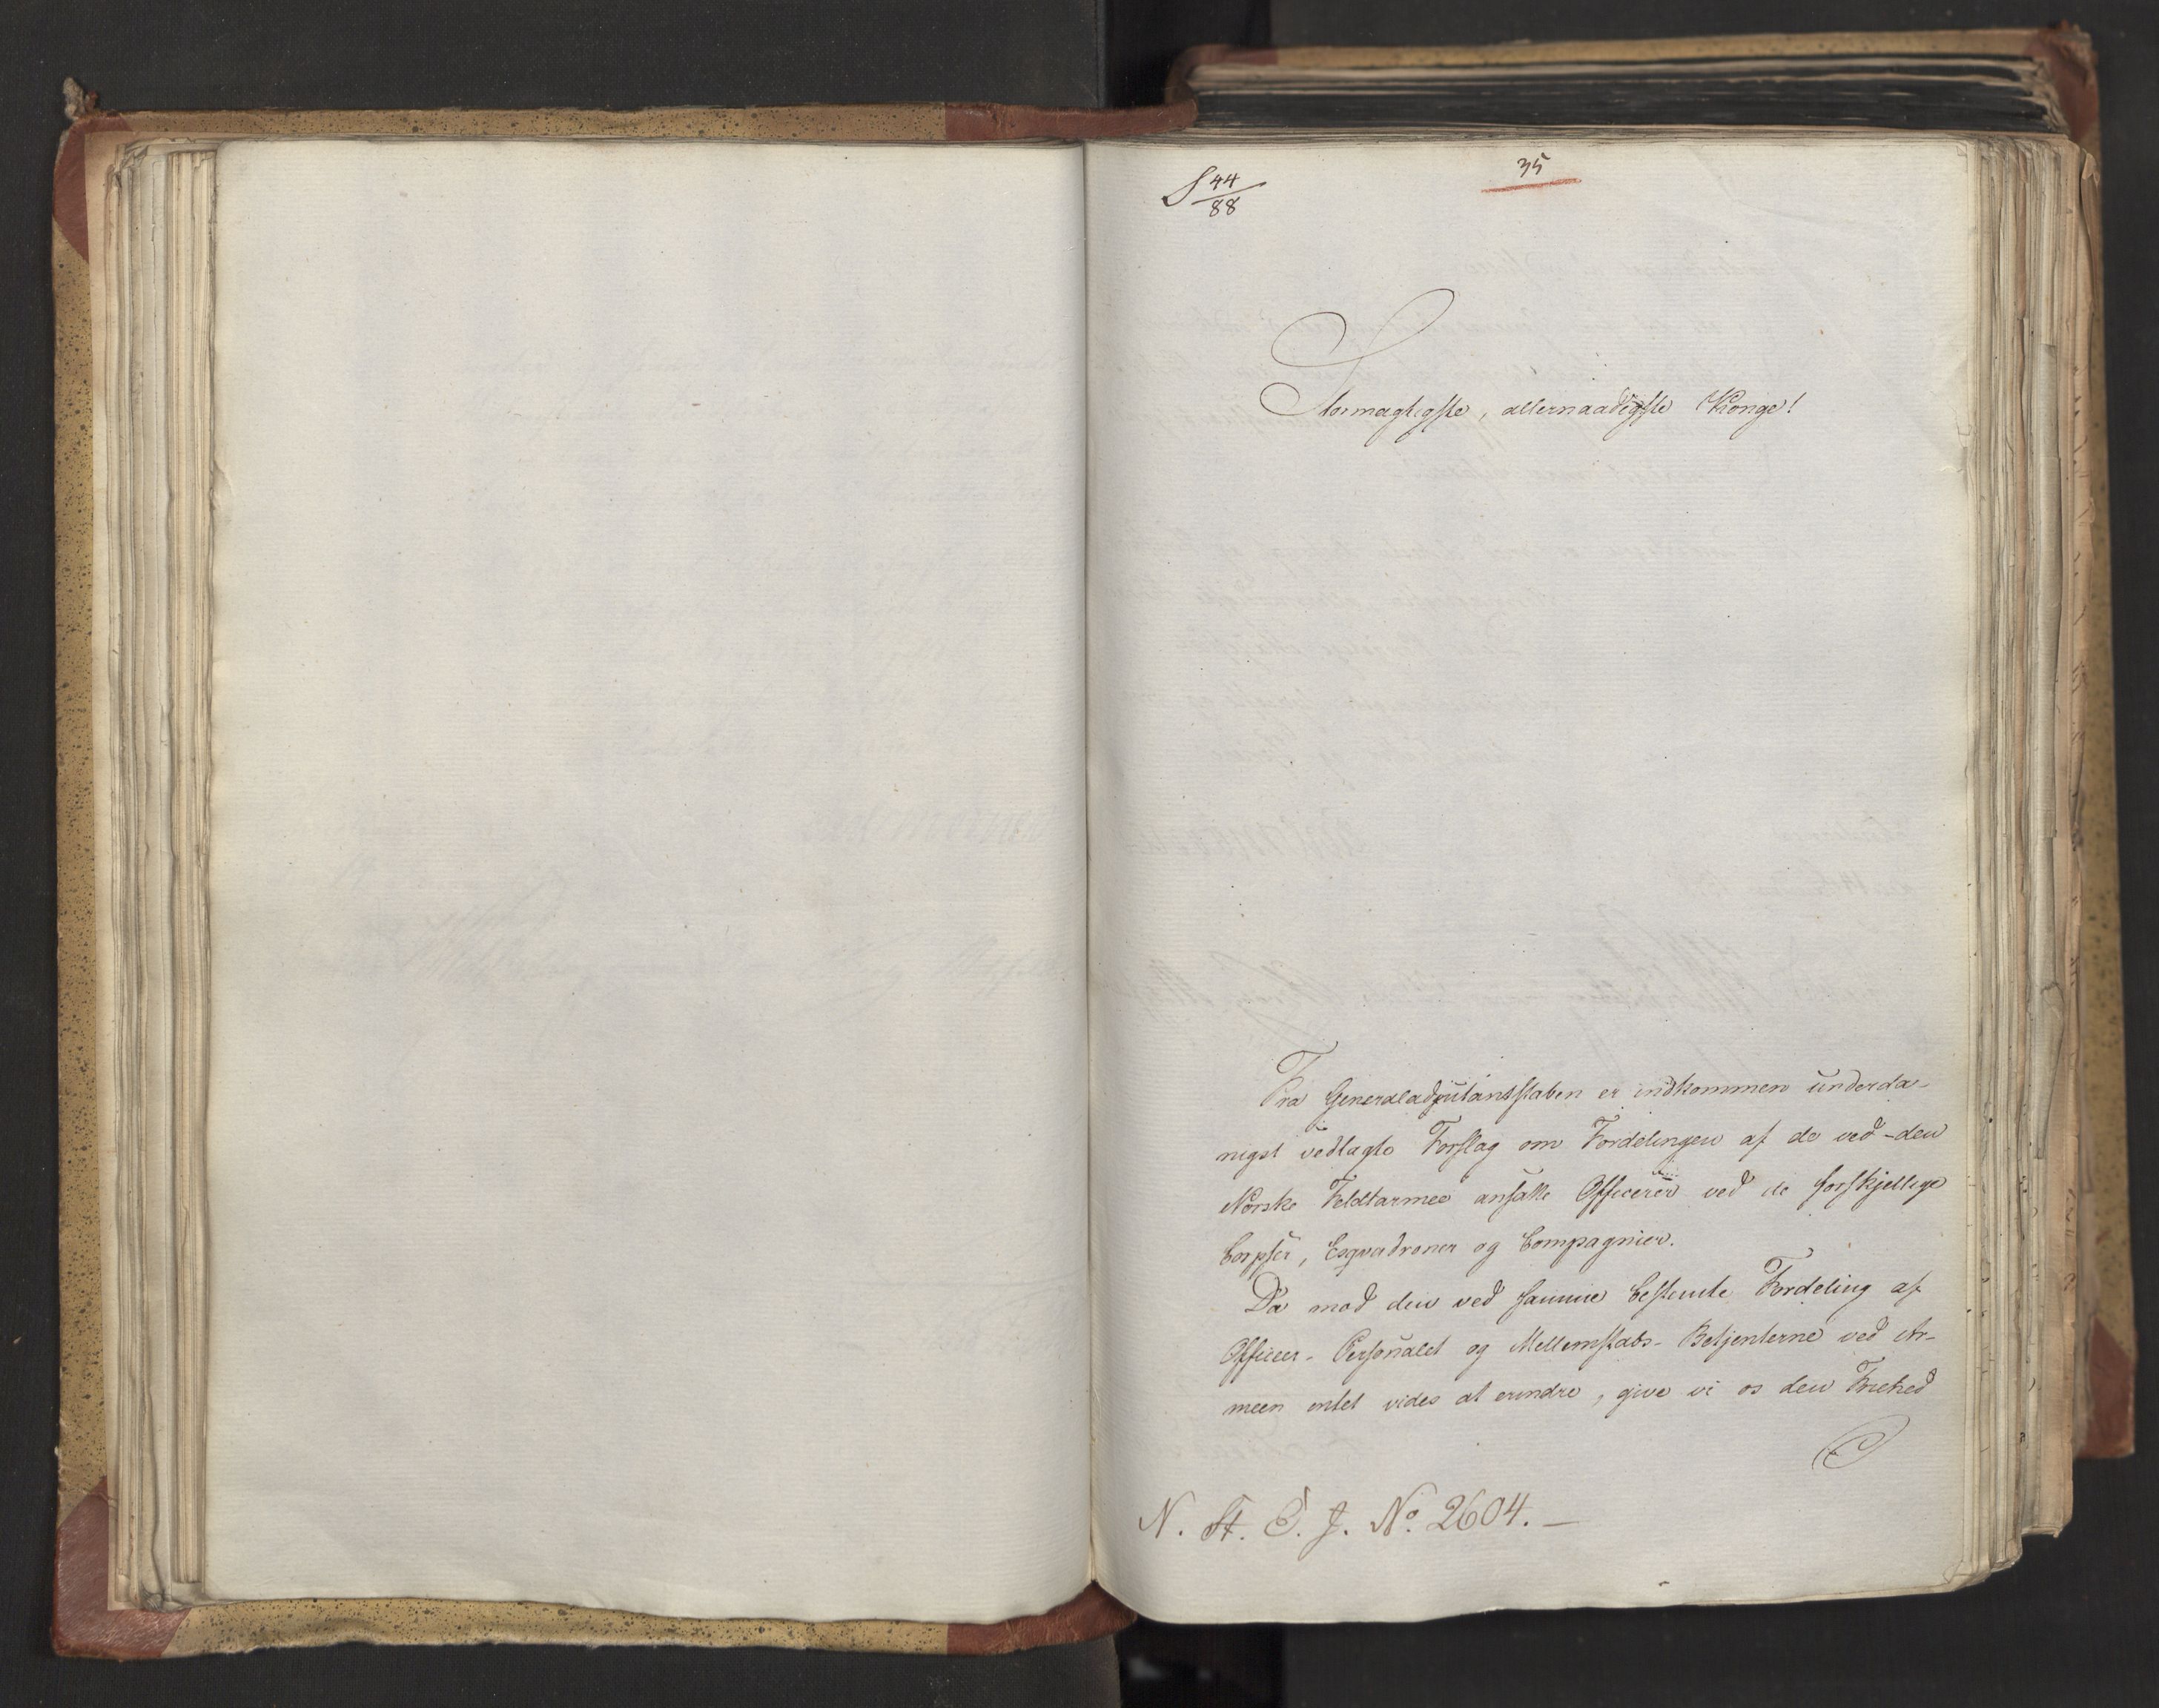 S 44/88
35
Stormægtigste, allernaadigste Konge!
Fra Generaladjutantstaben er indkommen underda-
nigst vedlagte Forslag om Fordelingen af de ved den
Norske Feldtarmee ansatte Officerer ved de forskjellige
Corpser, Esqvadroner og Compagnier.
Da mod den ved samme bestemte Fordeling af
Officeer-Personalet og Mellemstabs-Betjenterne ved Ar-
meen intet vides at erindre, give vi os den Friehed
N. St. E. J. No. 2604. —